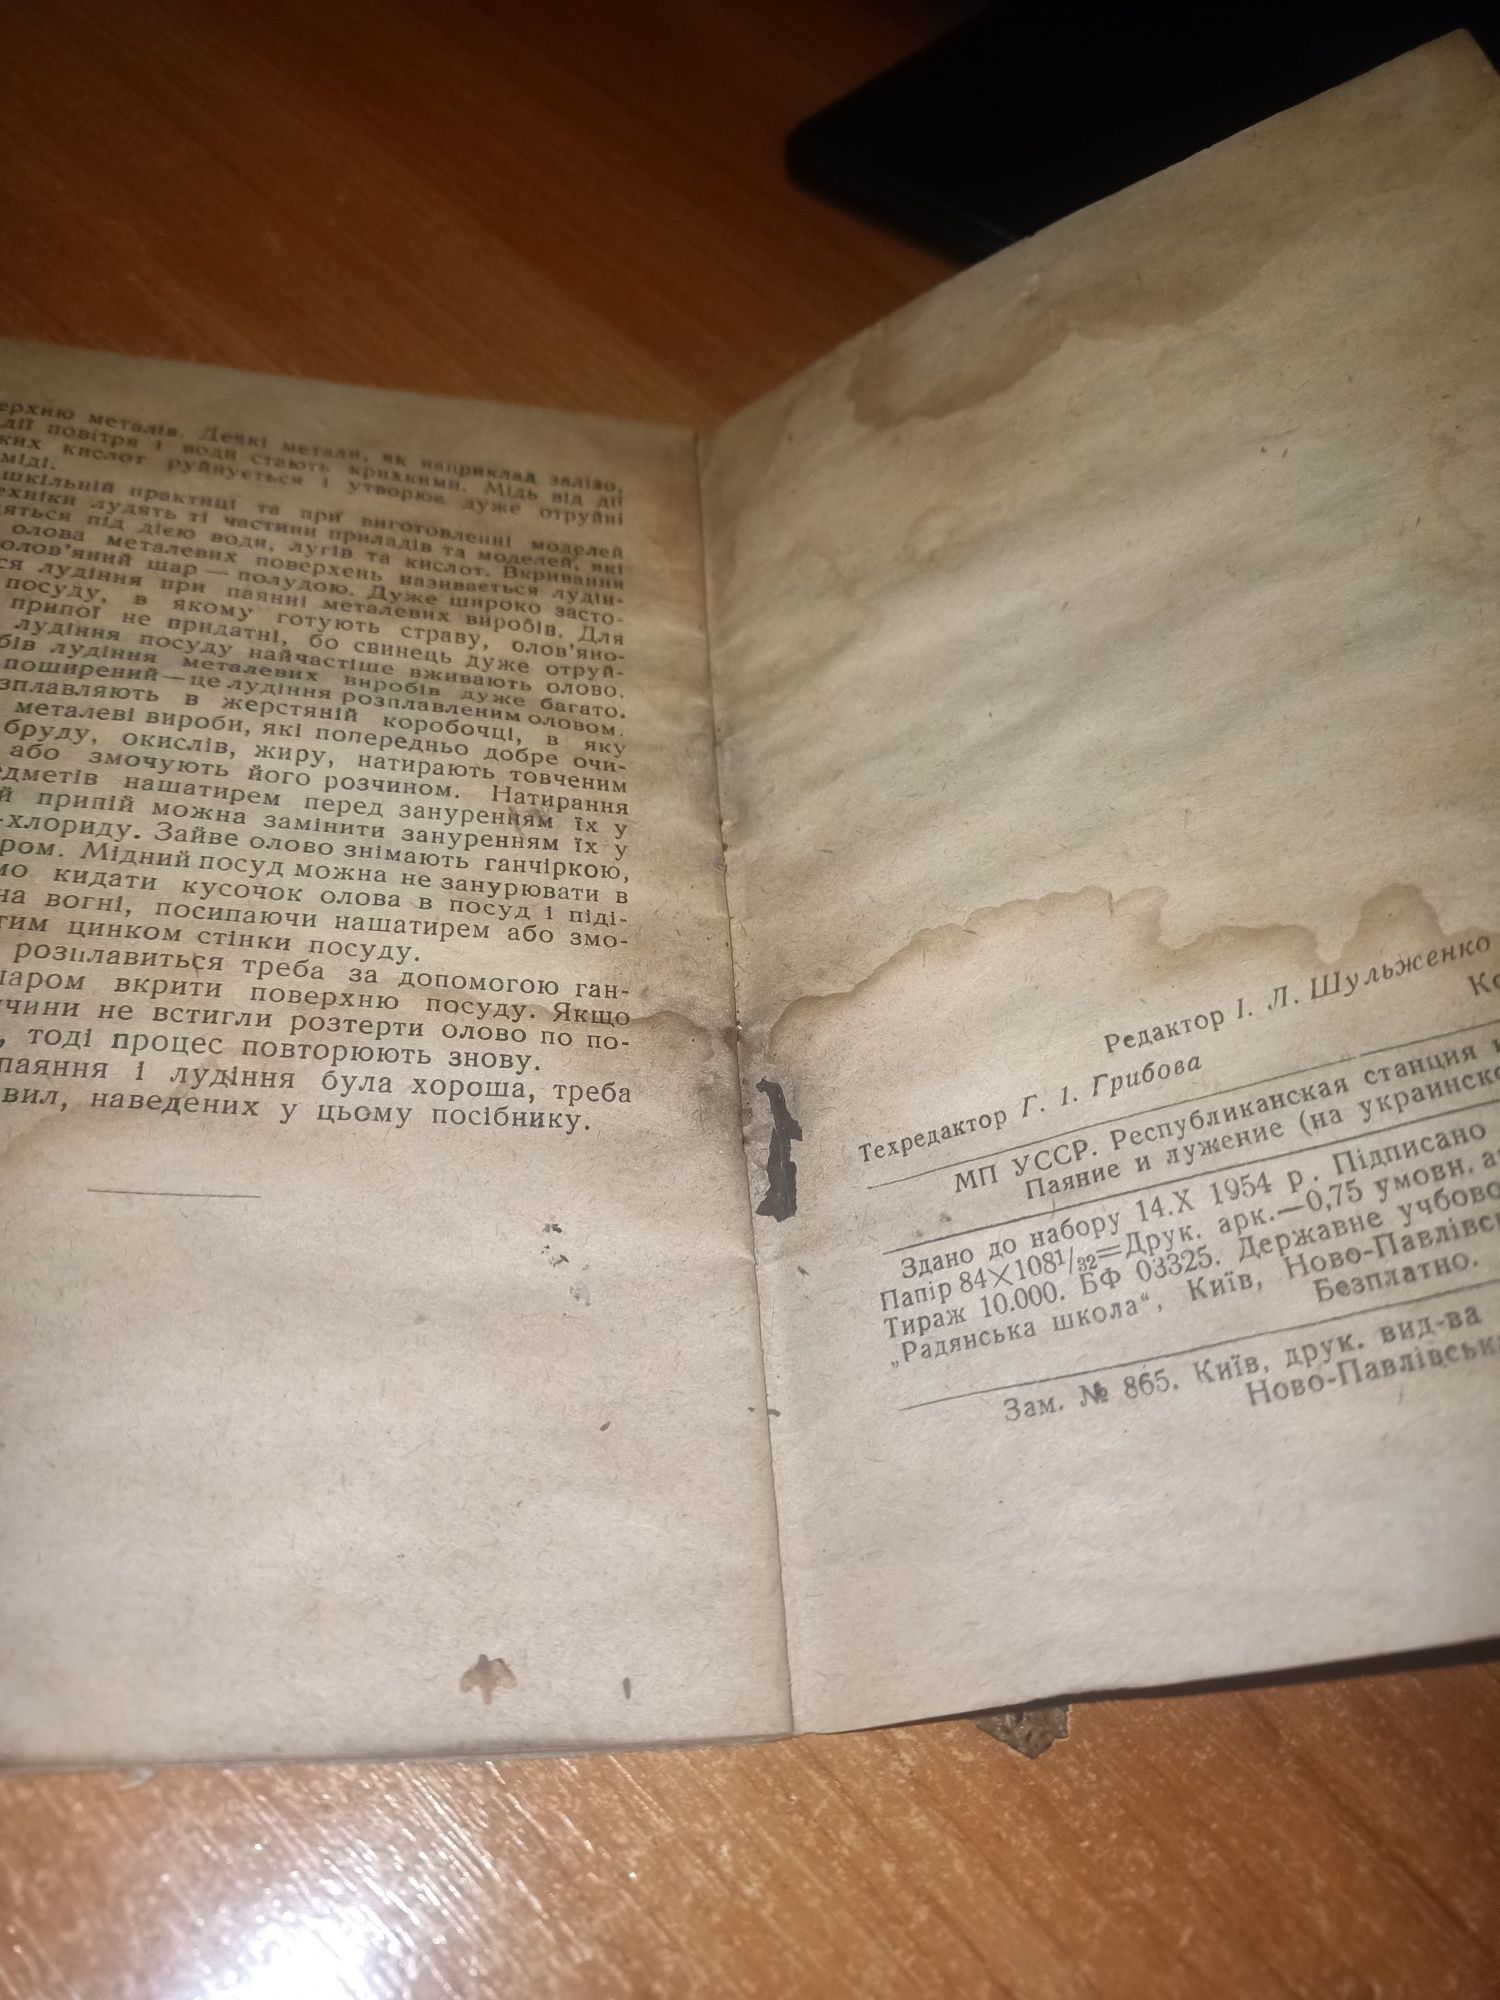 ерхню металів. Деякі метали, як наприклад залізо,
дії повітря і води стають крихкими. Мідь від дії
ких кислот руйнується і утворює дуже отруйні
міді.
шкільній практиці та при виготовленні моделей
ехніки лудять ті частини приладів та моделей, які
дяться під дією води, лугів та кислот. Вкривання
олова металевих поверхень називається лудін-
олов'яний шар — полудою. Дуже широко засто-
ся лудіння при паянні металевих виробів. Для
посуду, в якому готують страву, олов'яно-
припої не придатні, бо свинець дуже отруй-
лудіння посуду найчастіше вживають олово.
бів лудіння металевих виробів дуже багато.
поширений — це лудіння розплавленим оловом.
зплавляють в жерстяній коробочці, в яку
металеві вироби, які попередньо добре очи-
бруду, окислів, жиру, натирають товченим
або змочують його розчином. Натирання
едметів нашатирем перед зануренням їх у
й припій можна замінити зануренням їх у
-хлориду. Зайве олово знімають ганчіркою,
ром. Мідний посуд можна не занурювати в
мо кидати кусочок олова в посуд і піді-
на вогні, посипаючи нашатирем або змо-
тим цинком стінки посуду.
розплавиться треба за допомогою ган-
шаром вкрити поверхню посуду. Якщо
ичини не встигли розтерти олово по по-
, тоді процес повторюють знову.
паяння і лудіння була хороша, треба
вил, наведених у цьому посібнику.
Редактор І. Л. Шульженко
Техредактор Г. І. Грибова Ко
МП УССР. Республиканская станция
Паяние и лужение (на украинско
Здано до набору 14.X 1954 р. Підписано
Папір 84×108 1/32=Друк. арк.—0,75 умовн. а
Тираж 10.000. БФ 03325. Державне учбово
„Радянська школа“, Київ, Ново-Павлівсь
Безплатно.
Зам. № 865. Київ, друк. вид-ва
Ново-Павлівськ